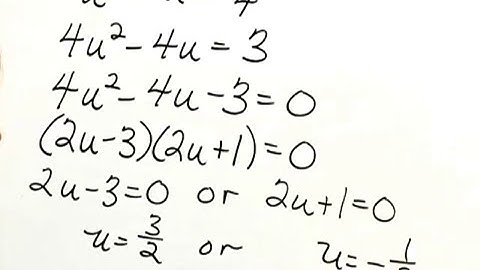 4u² - 4u = 3
4u² - 4u - 3 = 0
(2u-3)(2u+1) = 0
2u-3=0 or 2u+1=0
u = 3/2 or u = - 1/